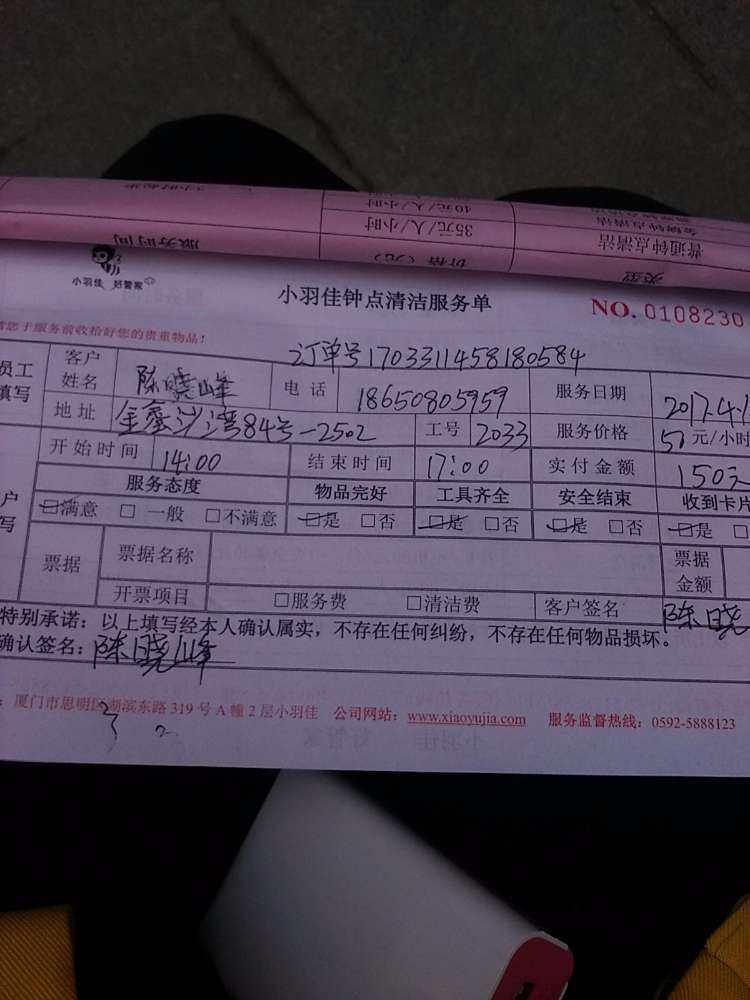 40元/人/小时
35元/人/小时 普通钟点清洁
服务时间 价格（元） 类型
小羽佳 好管家
小羽佳钟点清洁服务单 NO. 0108230
请您于服务前收拾好您的贵重物品！
订单号1703311458180584
员工填写 客户姓名 陈晓峰 电话 18650805959 服务日期 2017.4.1
地址 金銮沙湾84号-2502 工号 2033 服务价格 50元/小时
开始时间 14:00 结束时间 17:00 实付金额 150元
服务态度 物品完好 工具齐全 安全结束 收到卡片
户写 □满意 □一般 □不满意 □是 □否 □是 □否 □是 □否 □是 □
票据 票据名称 票据金额
开票项目 □服务费 □清洁费 客户签名 陈晓
特别承诺：以上填写经本人确认属实，不存在任何纠纷，不存在任何物品损坏。
确认签名：陈晓峰
：厦门市思明区湖滨东路319号A幢2层小羽佳 公司网站：www.xiaoyujia.com 服务监督热线：0592-5888123